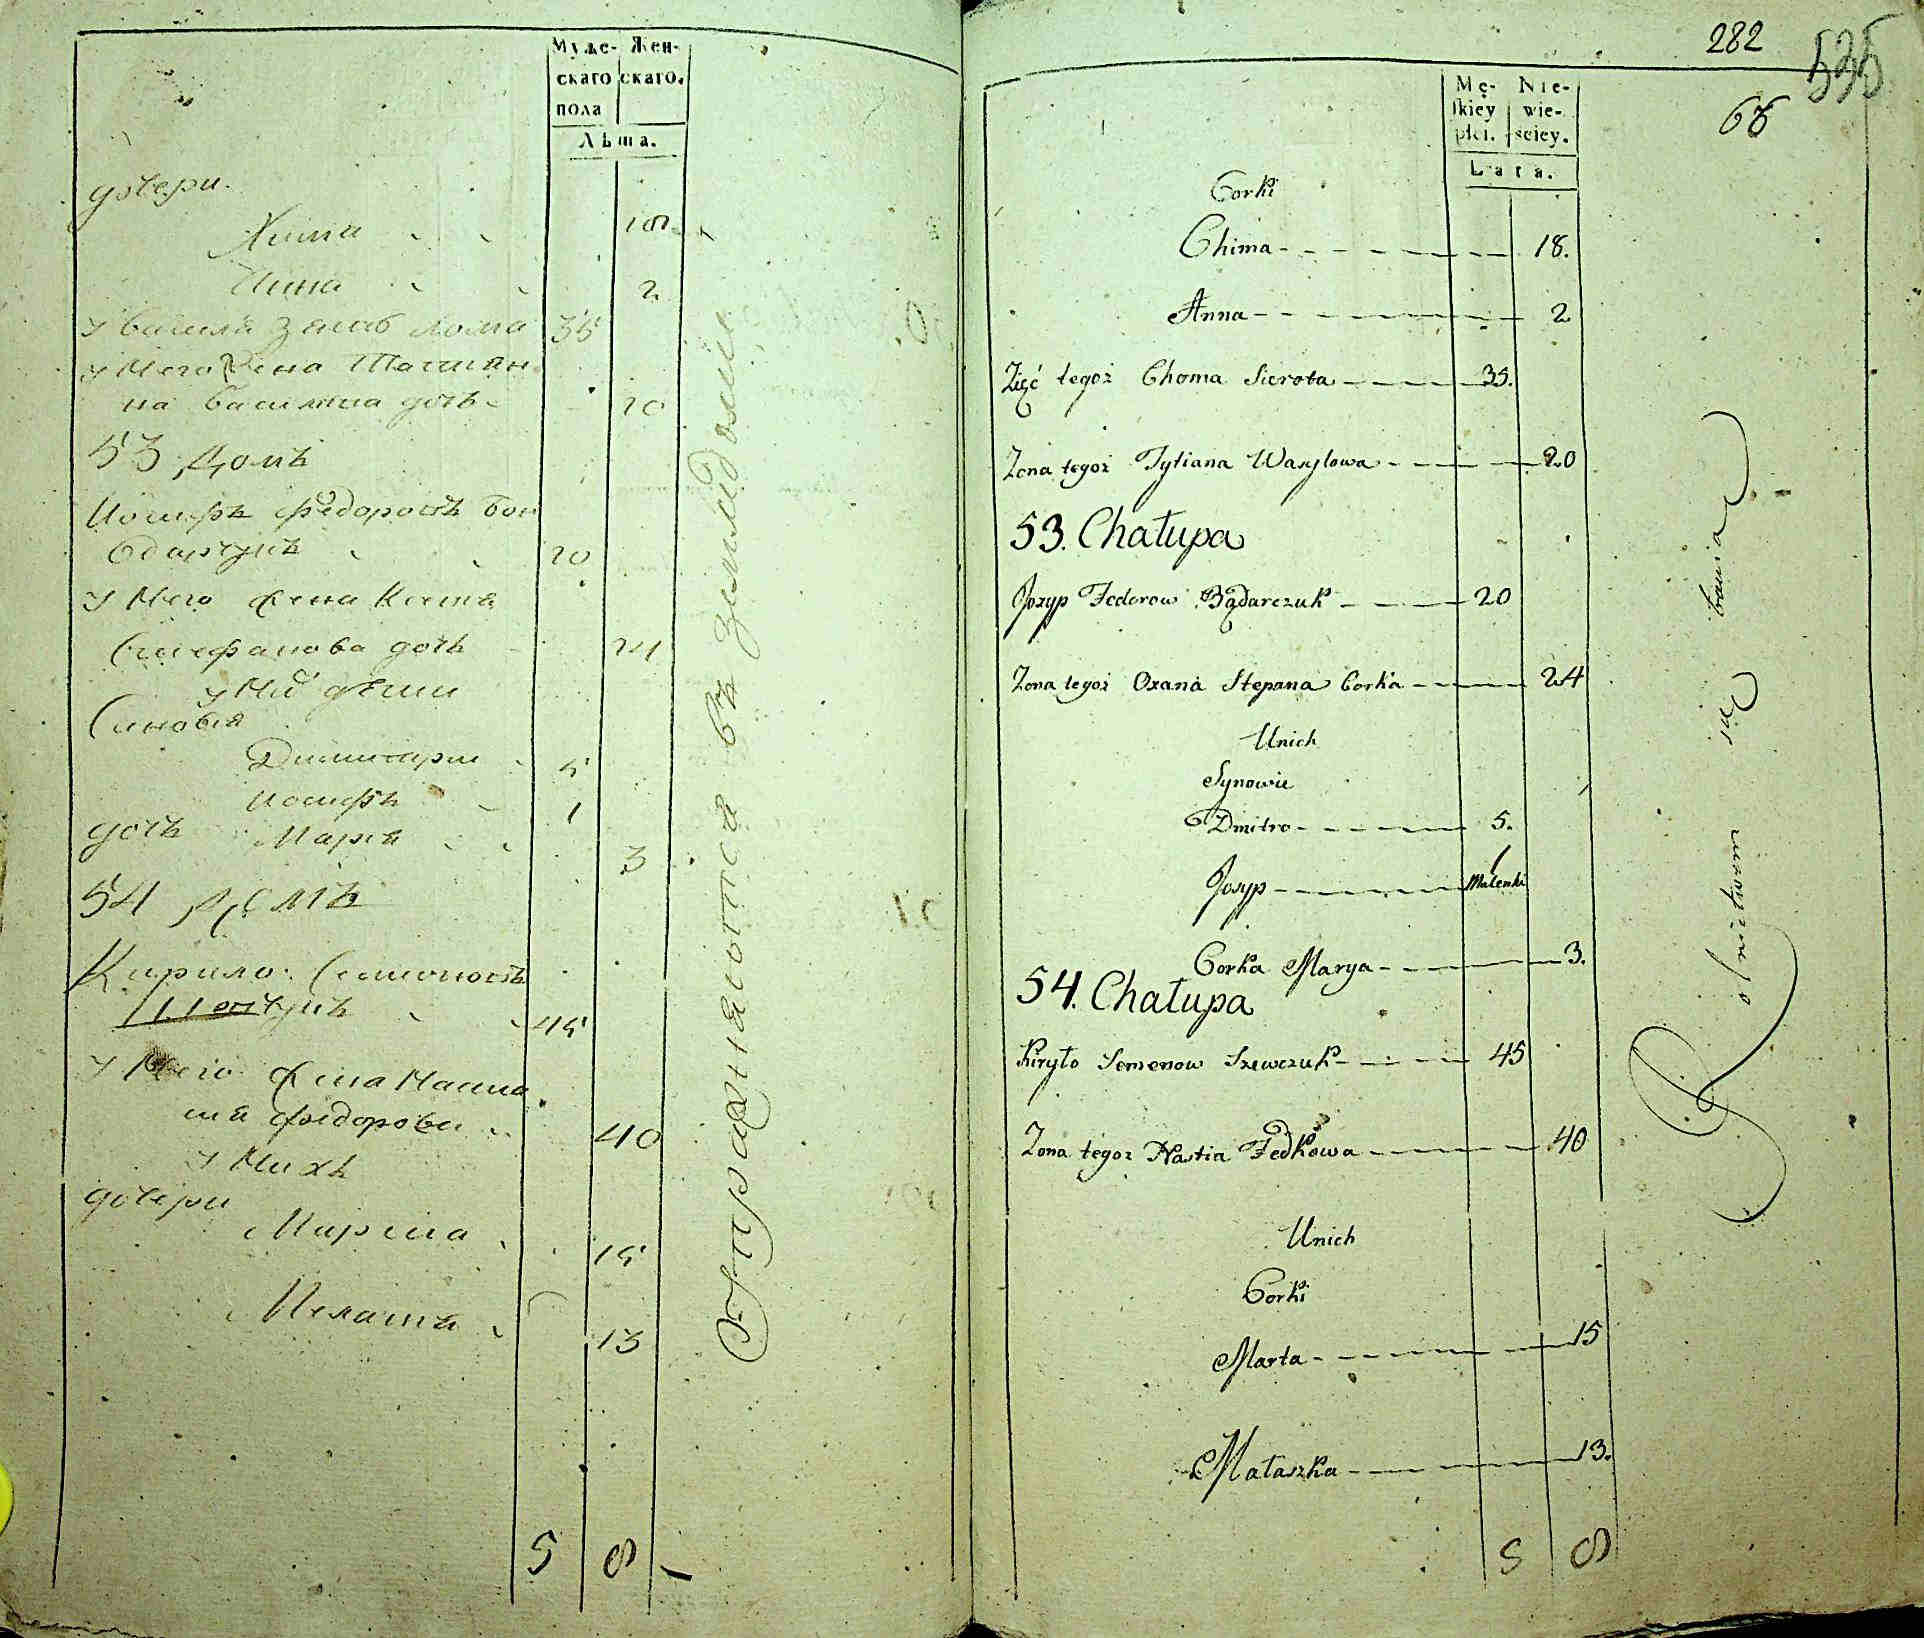 Муже- Жен-
скаго скаго.
пола
Лѣта.
дочери.
Хима 18
Анна 2
у Василя Зять Хома 35
у Него Жена Татиян
на Василиева дочь 20
53 домъ
Иосифъ Федоровъ Бон
дарчукъ 20
у Него Жена Ксеня
Стефанова дочь 24
у Них дѣти
Синовья
Димитрий 5
Иосифъ 1
дочь Мария 3
54 домъ
Кирило Семионовъ
Шевчукъ 45
у Него Жена Наста
сия Федорова 40
у Нихъ
дочери
Марта 15
Мелашка 13
5 8
Упражняются въ земледелии
282
535
68
Mę- Nie-
skiey wie-
płci. sciey.
Lata.
Corki
Chima 18.
Anna 2
Zięć tegoż Choma Sierota 35.
Zona tegoż Tytiana Wasylowa 20
53. Chałupa
Josyp Fedorow Bądarczuk 20
Zona tegoż Oxana Stepana Corka 24
Unich
Synowie
Dmitro 5.
Josyp 1 Malenki
Corka Marya 3.
54. Chałupa
Kiryło Semenow Szewczuk 45
Zona tegoż Nastia Fedkowa 40
Unich
Corki
Marta 15
Małaszka 13.
5 8
Rolnictwem się bawią